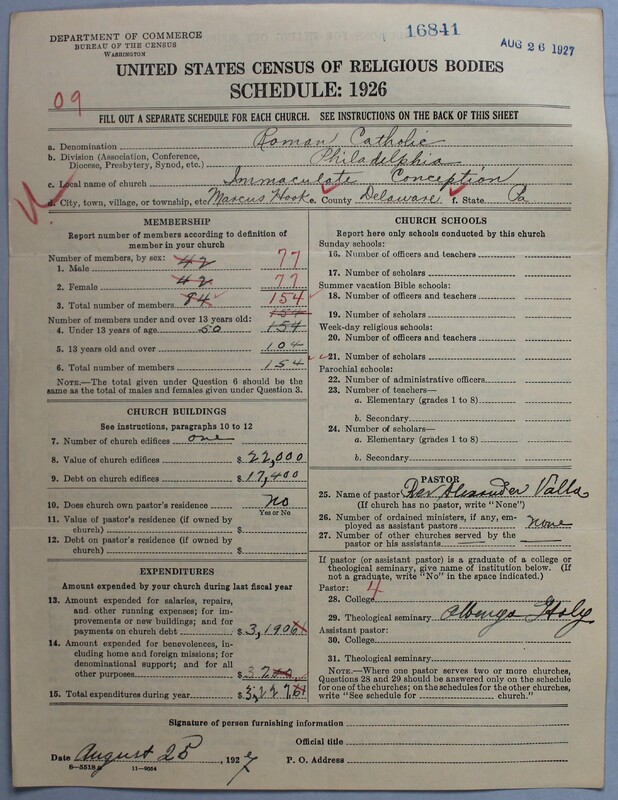 DEPARTMENT OF COMMERCE
BUREAU OF THE CENSUS
WASHINGTON
16841
AUG 26 1927
UNITED STATES CENSUS OF RELIGIOUS BODIES
SCHEDULE: 1926
09
FILL OUT A SEPARATE SCHEDULE FOR EACH CHURCH. SEE INSTRUCTIONS ON THE BACK OF THIS SHEET
a. Denomination Roman Catholic
b. Division (Association, Conference, Diocese, Presbytery, Synod, etc.) Philadelphia
c. Local name of church Immaculate Conception
d. City, town, village, or township, etc. Marcus Hook e. County Delaware f. State Pa
MEMBERSHIP
Report number of members according to definition of
member in your church
Number of members, by sex:
1. Male 42 77
2. Female 42 77
3. Total number of members 84 154
Number of members under and over 13 years old: 154
4. Under 13 years of age 50 154
5. 13 years old and over 104
6. Total number of members 154
NOTE.—The total given under Question 6 should be the
same as the total of males and females given under Question 3.
CHURCH BUILDINGS
See instructions, paragraphs 10 to 12
7. Number of church edifices one
8. Value of church edifices $ 22,000
9. Debt on church edifices $ 17,400
10. Does church own pastor's residence No
Yes or No
11. Value of pastor's residence (if owned by
church) $
12. Debt on pastor's residence (if owned by
church) $
EXPENDITURES
Amount expended by your church during last fiscal year
13. Amount expended for salaries, repairs,
and other running expenses; for im-
provements or new buildings; and for
payments on church debt $ 3,190
14. Amount expended for benevolences, in-
cluding home and foreign missions; for
denominational support; and for all
other purposes $
15. Total expenditures during year $ 3,227
CHURCH SCHOOLS
Report here only schools conducted by this church
Sunday schools:
16. Number of officers and teachers
17. Number of scholars
Summer vacation Bible schools:
18. Number of officers and teachers
19. Number of scholars
Week-day religious schools:
20. Number of officers and teachers
21. Number of scholars
Parochial schools:
22. Number of administrative officers
23. Number of teachers—
a. Elementary (grades 1 to 8)
b. Secondary
24. Number of scholars—
a. Elementary (grades 1 to 8)
b. Secondary
PASTOR
25. Name of pastor Rev Alexander Valla
(If church has no pastor, write "None")
26. Number of ordained ministers, if any, em-
ployed as assistant pastors none
27. Number of other churches served by the
pastor or his assistants
If pastor (or assistant pastor) is a graduate of a college or
theological seminary, give name of institution below. (If
not a graduate, write "No" in the space indicated.)
Pastor: 4
28. College
29. Theological seminary Albenga Italy
Assistant pastor:
30. College
31. Theological seminary
NOTE.—Where one pastor serves two or more churches,
Questions 28 and 29 should be answered only on the schedule
for one of the churches; on the schedules for the other churches,
write "See schedule for church."
Signature of person furnishing information
Official title
Date August 25, 1927 P. O. Address
8—5518 a 11—9054